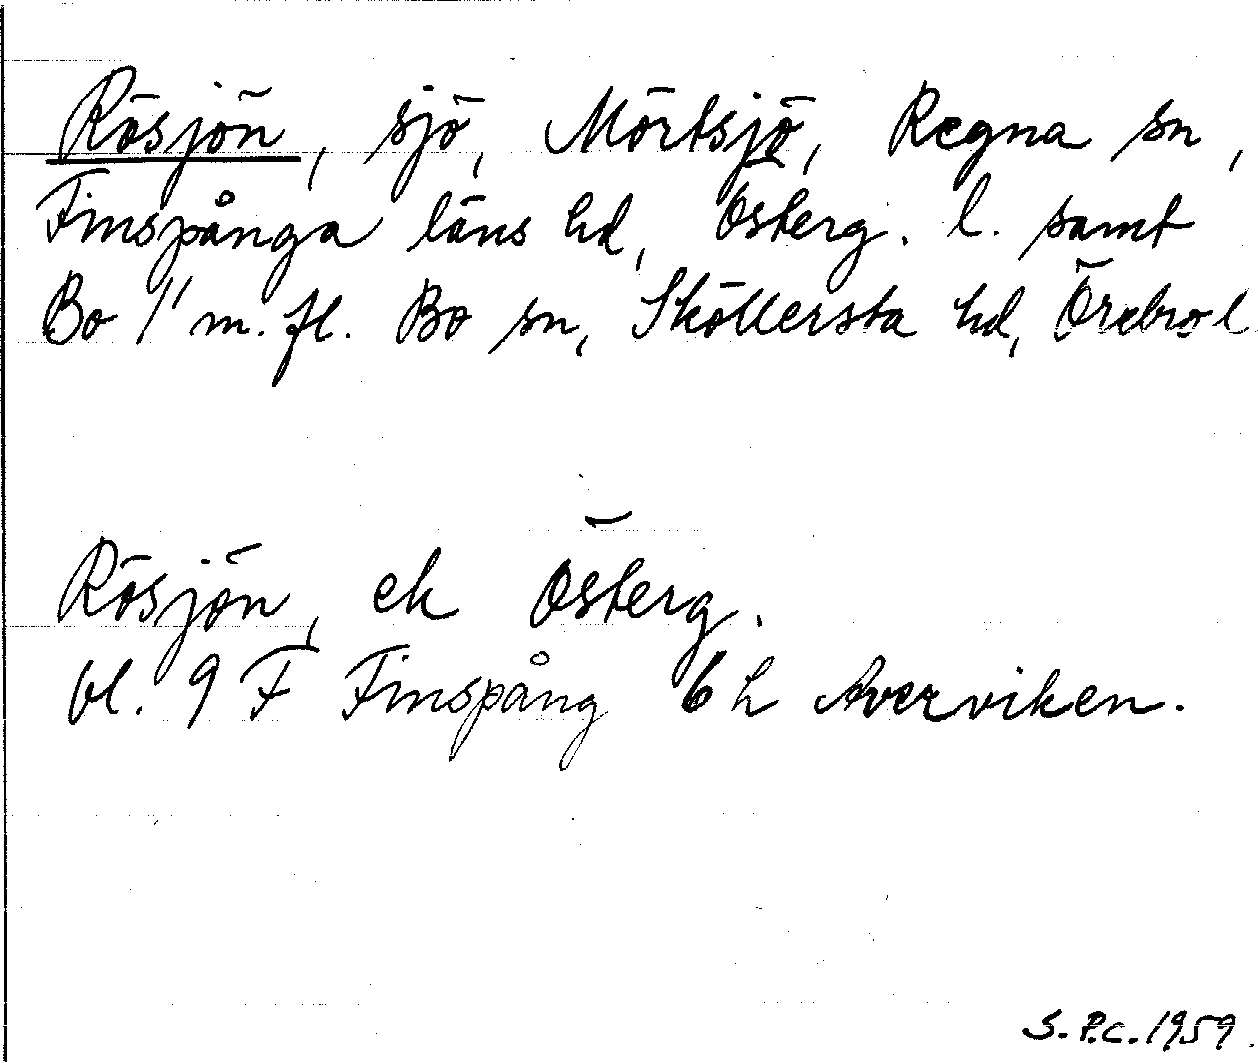 Rösjön, sjö, Mörtsjö, Regna sn,
Finspånga läns hd, Österg. l. samt
Bo 1/1 m. fl. Bo sn, Sköllersta hd, Örebro l
Rösjön, ek Österg.
bl. 9 F Finspång 6 h Averviken.
S. P.C. 1959.